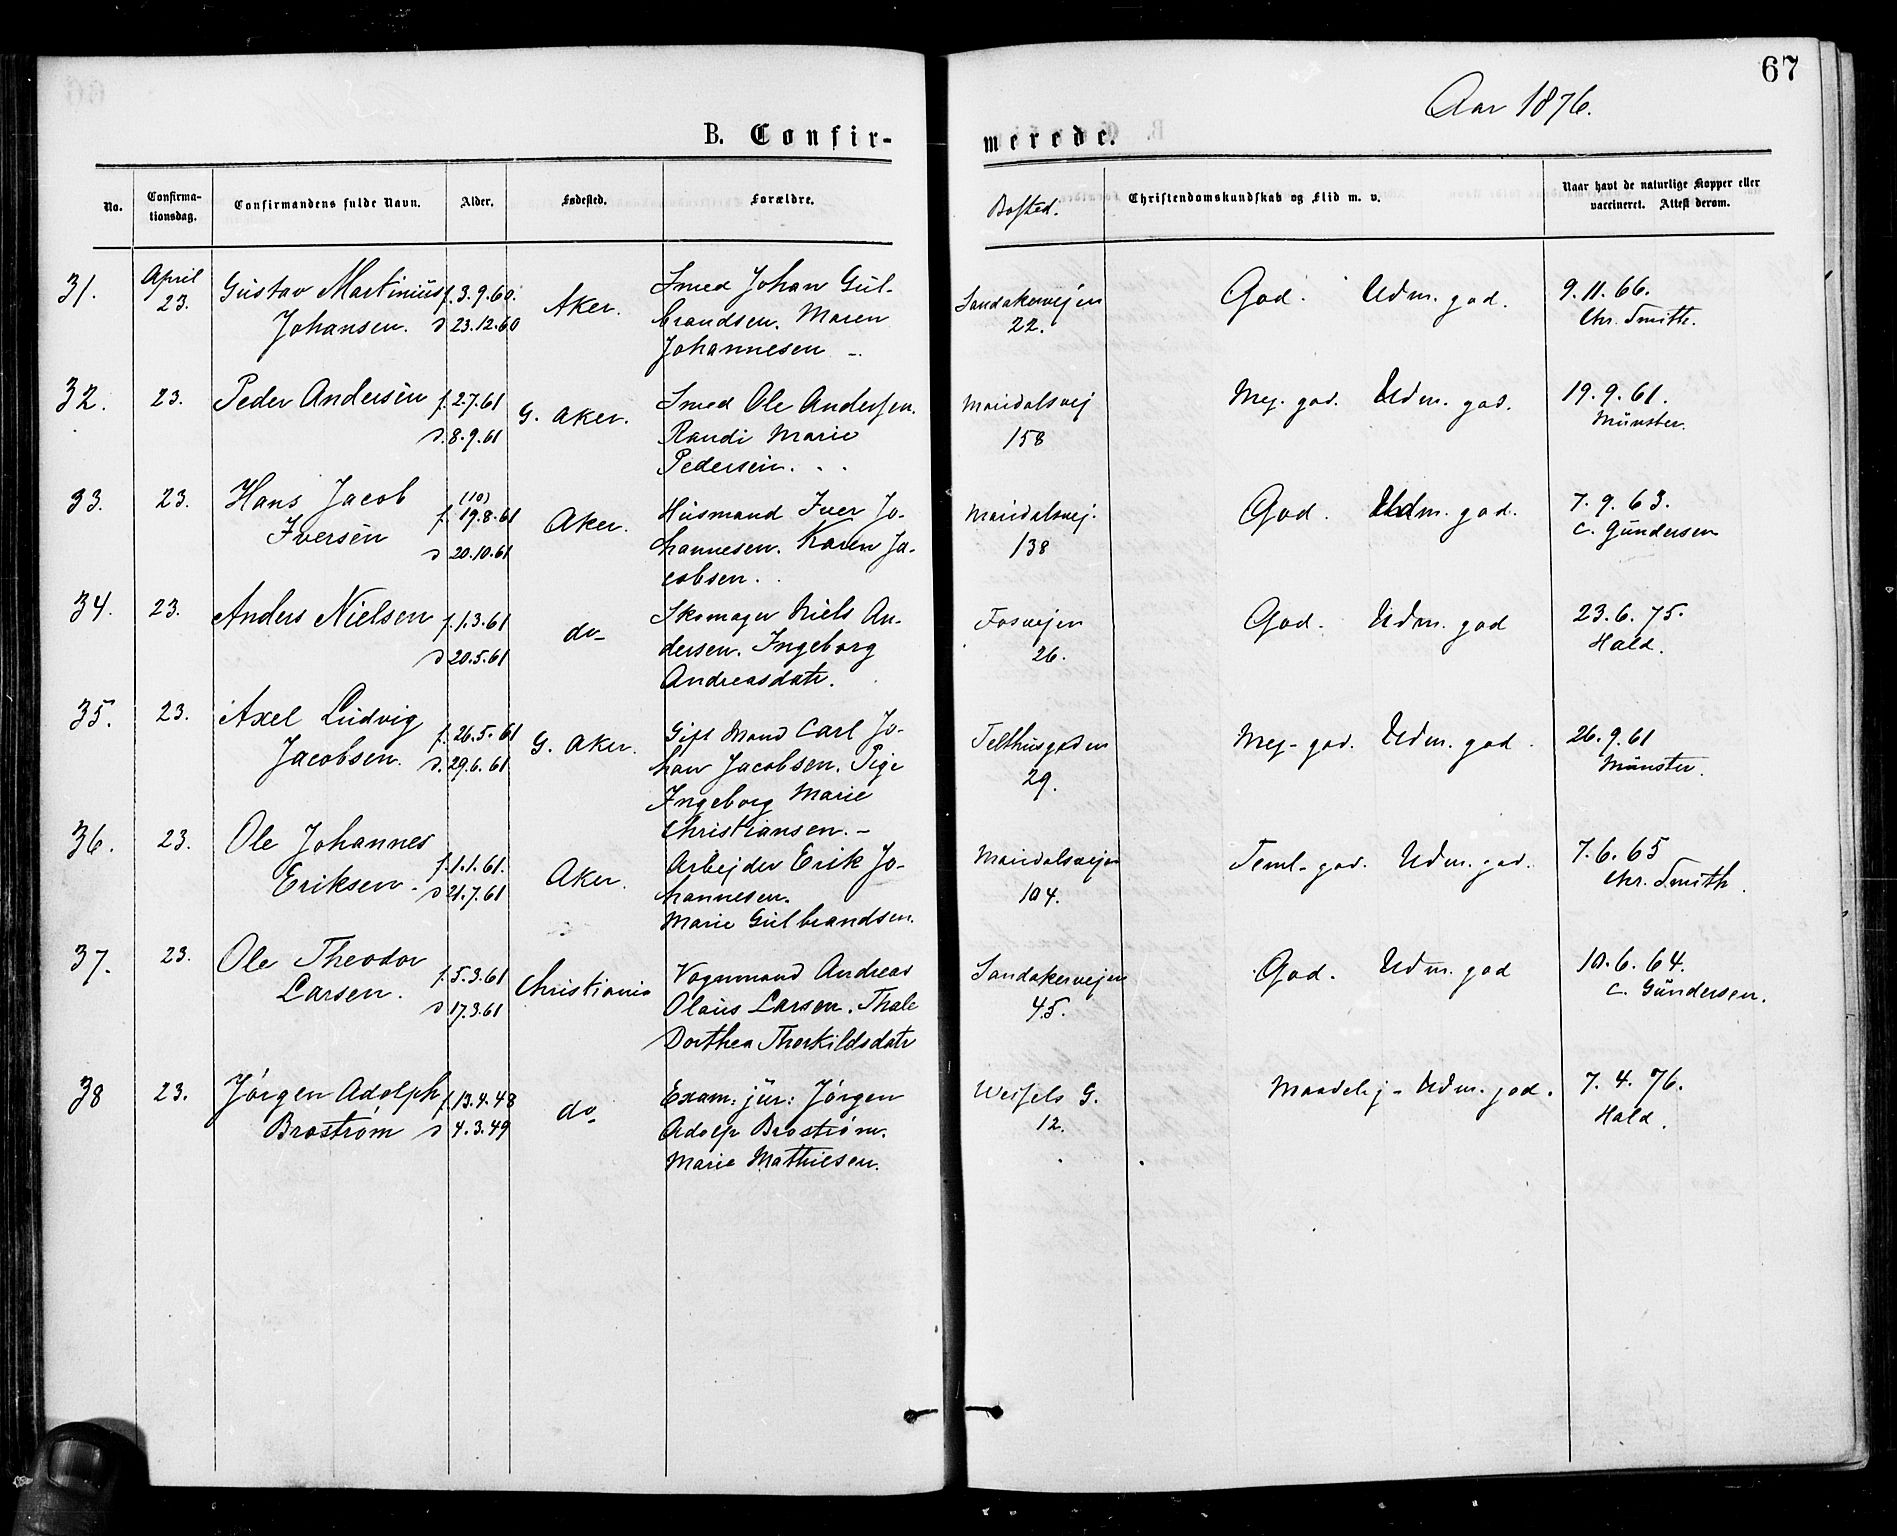 67
Aar 1876.
B. Confir-
merede.
No.
Confirma-
tionsdag.
Confirmandens fulde Navn.
Alder.
Fødested.
Forældre.
Bosted.
Christendomskundskab og Flid m. v.
Naar havt de naturlige Kopper eller
vaccineret. Attest derom.
31. April 23. Gustav Martinius Johansen. f. 3.9.60. d 23.12.60 Aker. Smed Johan Gul-
brandsen. Maren
Johannesen -
Sandakervejen 22. God. Udm. god. 9.11.66. Chr. Smith.
32. 23. Peder Andersen f. 2.7.61 d. 8.9.61 G. Aker. Smed Ole Andersen.
Randi Marie
Pedersen.
Maridalsvej 158 Meg. god. Udm. god. 19.9.61. Münster.
33. 23. Hans Jacob Iversen (10) f. 19.8.61 d 20.10.61 Aker. Husmand Iver Jo-
hannesen. Karen Ja-
cobsen.
Maridalsvej. 138 God. Udm. god. 7.9.63. C. Gundersen
34. 23. Anders Nielsen f. 1.3.61 d 20.5.61 do- Skomager Niels An-
dersen. Ingeborg
Andreasdatr.
Fosvejen 26. God. Udm. god 23.6.75. Hald.
35. 23. Axel Ludvig Jacobsen. f. 26.5.61 d. 29.6.61 G. Aker. Gift Mand Carl Jo-
han Jacobsen. Pige
Ingeborg Marie
Christiansen. -
Telthusgaden 29. Meg- god. Udm. god. 26.9.61 Münster.
36. 23. Ole Johannes Eriksen. f. 1.1.61. d 21.7.61 Aker. Arbejder Erik Jo-
hannesen.
Marie Gulbrandsen.
Maridalsvejen 104. Teml- god. Udm. god. 7.6.65 Chr. Smith.
37. 23. Ole Theodor Larsen. f. 5.3.61 d 17.3.61 Christiania Vognmand Andreas
Olaus Larsen. Thale
Dorthea Thorkildsdatr
Sandakervejen 45. God. Udm. god 10.6.64. C. Gundersen.
38 23. Jørgen Adolph Brostrøm f. 13.4.48 d 4.3.49 do- Exam: jur: Jørgen
Adolp Brostrøm.
Marie Mathiesen.
Wessels G. 12. Maadelig - Udm. god. 7.4.76. Hald.